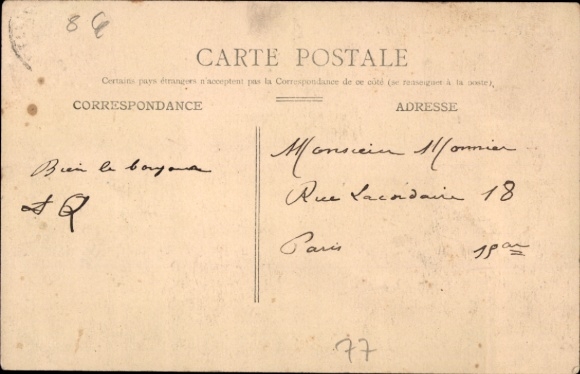 8 6
CARTE POSTALE
Certains pays étrangers n'acceptent pas la Correspondance de ce côté (se renseigner à la poste).
CORRESPONDANCE
ADRESSE
Bien le bonjour
Monsieur Monnier
Rue Lacordaire 18
Paris 15ar
77